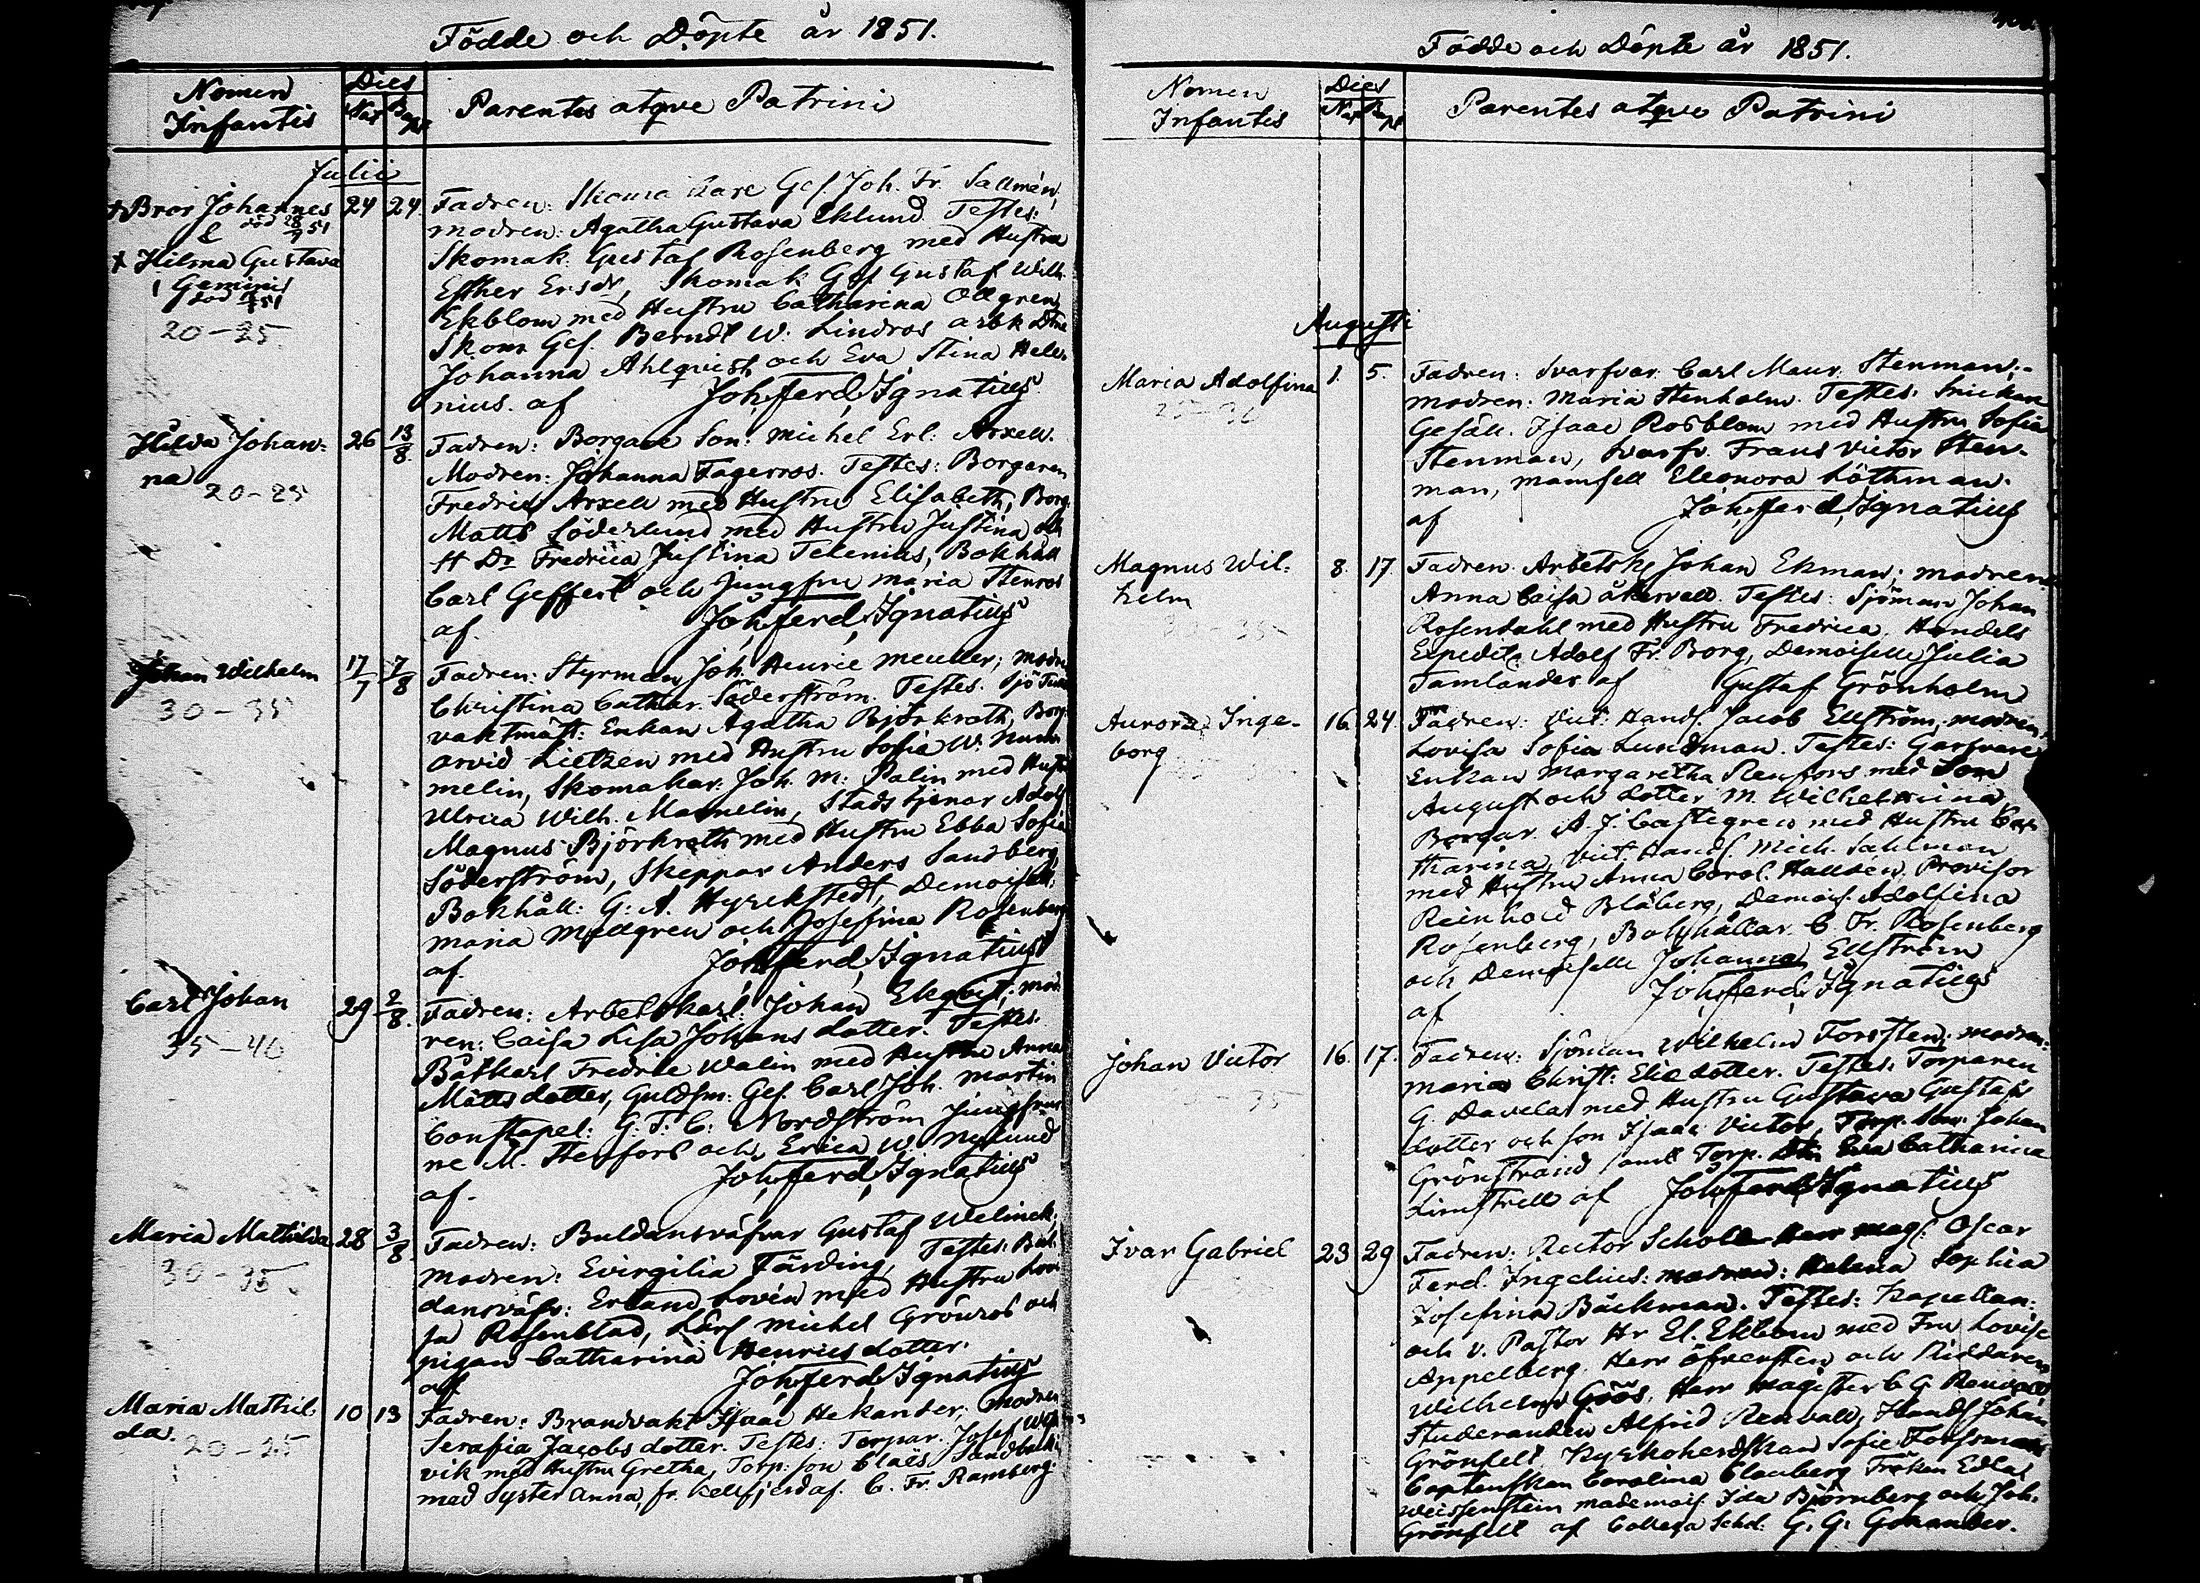 Födde och Döpte år 1851.
Nomen Infantis
Dies
Nat Bapt
Parentes atqve Patrini
Julii
+ Bror Johannes 24 24
&
+ Hilma Gustava
Gemini
20-25
Fadren: Skomakare Ges. Joh. Fr. Sallmén,
modren: Agatha Gustava Eklund. Testes:
Skomak: Gustaf Rosenberg med Hustru
Esther Ersdr, Skomak Ges Gustaf Wilh.
Ekblom med Hustru Catharina Ollgren,
Skom Ges. Berndt W. Lindros
Johanna Ahlqvist och Eva Stina Hele-
nius. af Joh. Ferd. Ignatius
Hilda Johan-
na 26 13/8
20-25
Fadren: Borgare Son: Michel Erl: Axell.
Modren: Johanna Fagerroos. Testes: Borgaren
Fredrik Axell med Hustru Elisabeth, Borg.
Matts Söderlund med Hustru Justina
Fredrica Justina Telenius, Bokhåll
Carl Geffert och jungfru Maria Stenros
af. Joh. Ferd. Ignatius
Johan Wilhelm 17/7 7/8
30-35
Fadren: Styrman Joh. Henric Meuller; modr
Christina Cathar. Söderström. Testes. Sjö Tull
vaktmäst: Enkan Agatha Björkroth, Borg.
Arvid Lietzen med Hustru Sofia W. Num-
melin, Skomakar. Joh. M. Palin med Hustr
Ulrica Wilh. Mamelin, Stads tjenar Adolf
Magnus Björkroth med Hustru Ebba Sofia
Söderström, Skeppar Anders Sandberg,
Bokhåll: G. A. Hyrckstedt, Demoisell:
Maria Mellgren och Josefina Rosenberg
af. Joh. Ferd. Ignatius
Carl Johan 29 2/8
35-40
Fadren: Arbetskarl Johan Ekqvist; mod
ren: Caisa Lisa Johans dotter. Testes.
Båtkarl Fredric Walin med Hustru Anna
Matts dotter, Guldsm: Ges. Carl Joh. Martin
Constapel: G. T. C. Nordström Jungfrur
ne M. Stenfors och Erica W. Nylund
af. Joh. Ferd. Ignatius
Maria Mathilda 28 3/8
30-35
Fadren: Buldansväfvar Gustaf Welinck,
Modren: Evirgilia Färding, Testes: Bul-
dansväfv: Erland Lovén med Hustru Lovi
sa Rosenblad, Lars Michel Grönros och
pigan Catharina Henrics dotter.
af Joh. Ferd. Ignatius
Maria Mathil-
da. 10 13
20-25
Fadren: Brandvakt Isaac Hekander, Modren
Serafia Jacobs dotter. Testes: Torpar. Josef
vik med Hustru Gretha, Torp: son Claës Sandbacka
med Syster Anna, fr. af. C. Fr. Ramberg.
Födde och Döpte år 1851.
Nomen Infantis
Dies
Nat Bapt
Parentes atqve Patrini
Augusti
Maria Adolfina 1. 5.
Fadren: Svarfvar. Carl Maur. Stenman.-
Modren: Maria Stenholm. Testes: Snickare
Gesäll. Isaac Rosblom med Hustru Sofia
Stenman, Svarfv. Frans Victor Sten-
man, Mamsell Eleonora Löthman.
af Joh. Ferd. Ignatius
Magnus Wil-
helm 8. 17.
Fadren. Arbetsk Johan Ekman; modren
Anna Caisa Åkervall. Testes: Sjöman Johan
Rosendahl med Hustru Fredrica, Handels
Expedit. Adolf Fr. Borg, Demoiselle Julia
Tamlander af Gustaf Grönholm
Aurora Inge-
borg 16. 24.
Fadren: Vict: Handl. Jacob Ellström, modren,
Lovisa Sofia Lundman. Testes: Garfvare
Enkan Margaretha Renfors med Son
August och dotter M. Wilhelmina
Borgar. A. J. Castegren med Hustru Ca-
tharina, Vict. Handl. Mich. Sahlman
med Hustru Anna Carol. Hallsén, Provisor
Reinhold Blåberg, Demois. Adolfina
Rosenberg, Bokhållar. C. Fr. Rosenberg
och Demoiselle Johanna Ellström
af Joh. Ferd. Ignatius
Johan Victor 16. 17.
Fadren: Sjöman Wilhelm Forsstén: modren:
Maria Christ: Elie dotter. Testes: Torparen
G. Davela med Hustru Gustava Gustafs
dotter och son Isaac Victor, Torp. Johan
Grönstrand samt Torp. Eva Catharina
af Joh. Ferd. Ignatius
Ivar Gabriel 23 29
Fadren: Rector Schol Herr Mag: Oscar
Ferd. Ingelius: modren: Helena Sophia
Josefina Bäckman. Testes: Kapellan:
och v. Pastor Hr El. Ekbom med Fru Lovise
Appelberg. Herr öfversten och Riddaren
Wilhelm Göös, Herr Magister C. G. Renvall,
Studeranden Alfrid Renvall, Handl Johan
Grönfelt. Kyrkoherdskan Sofie Forssman
Captenskan Carolina Clauberg Fröken Edla
Weissenstein mademois. Ida Björnberg och Joh.
Grönfelt af Collega Schol: G. G. Gonander.